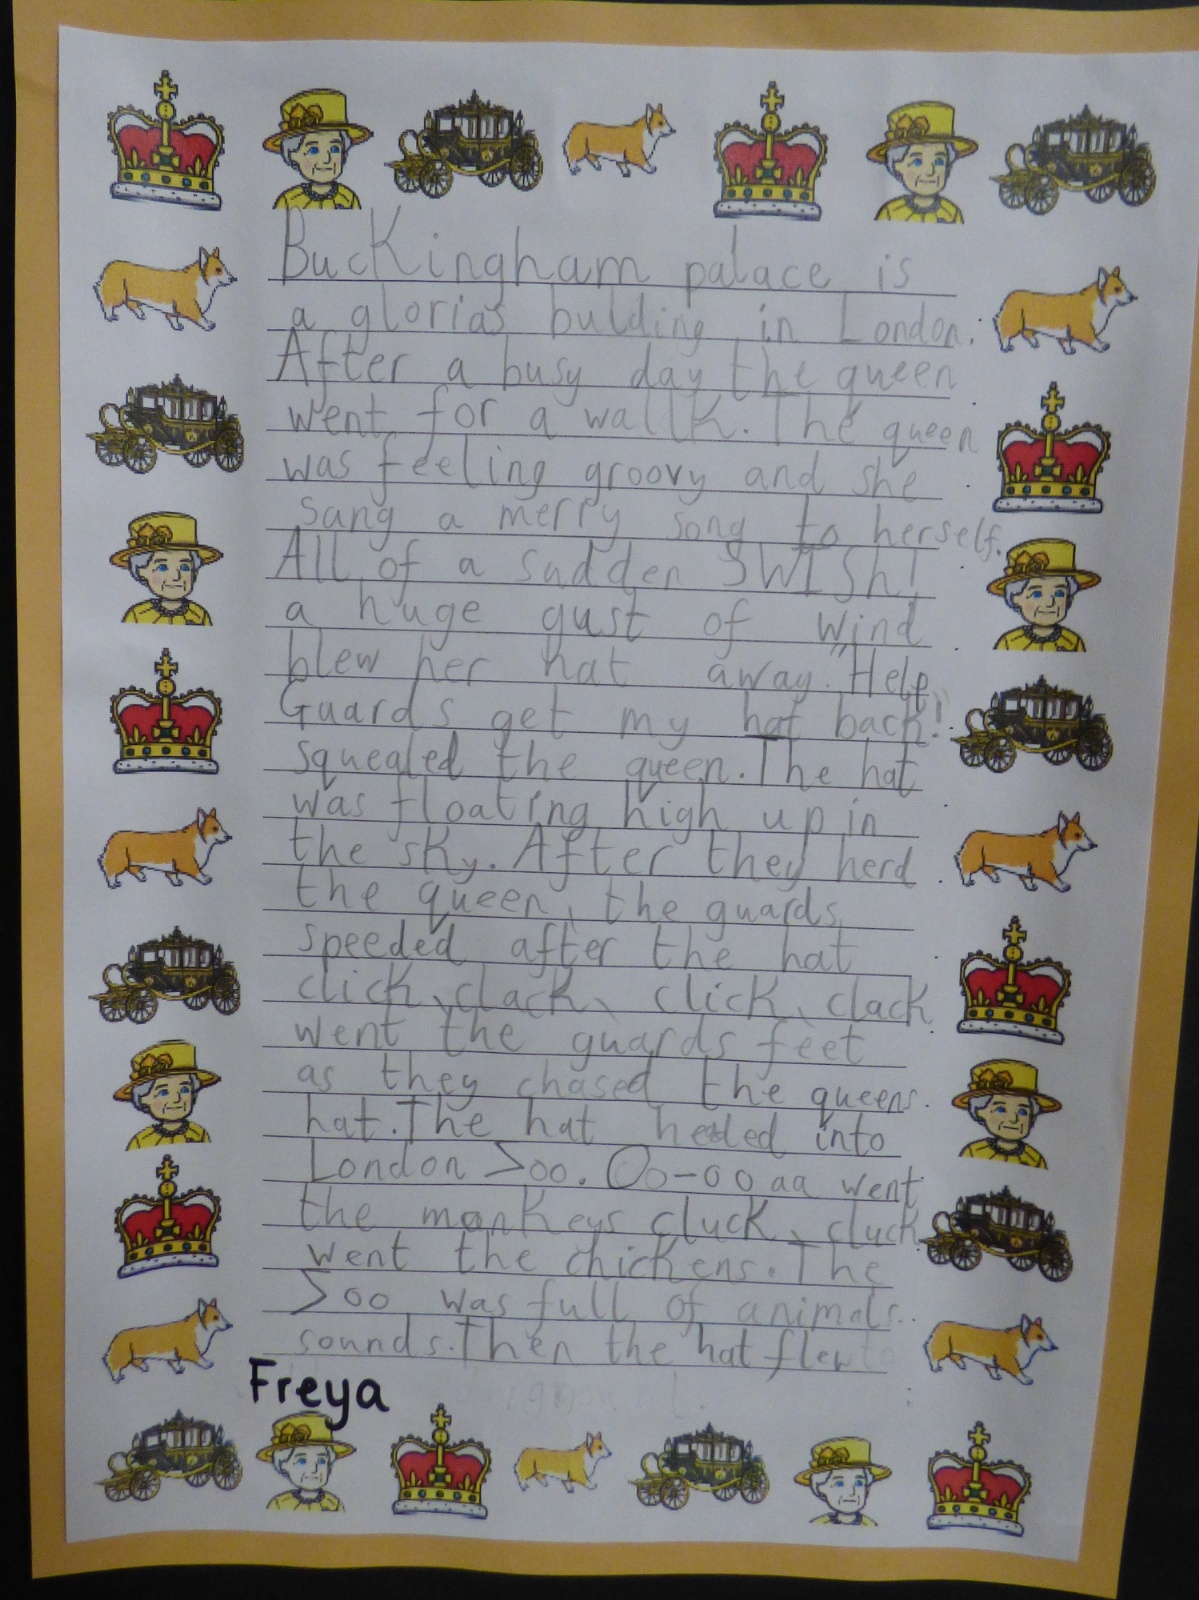 Buckingham palace is
a glorias bulding in London.
After a busy day the queen
went for a wallk. The queen
was feeling groovy and she
sang a merry song to herself.
All of a sudden SWISh!
a huge gust of wind
blew her hat away. "Help
Guards get my hat back!"
squealed the queen. The hat
was floating high up in
the sky. After they herd
the queen, the guards
speeded after the hat
click, clack, click, clack
went the guards feet
as they chased the queens
hat. The hat heded into
London Zoo. Oo-oo aa went
the monkeys cluck, cluck
went the chickens. The
Zoo was full of animals
sounds. Then the hat flew
Freya